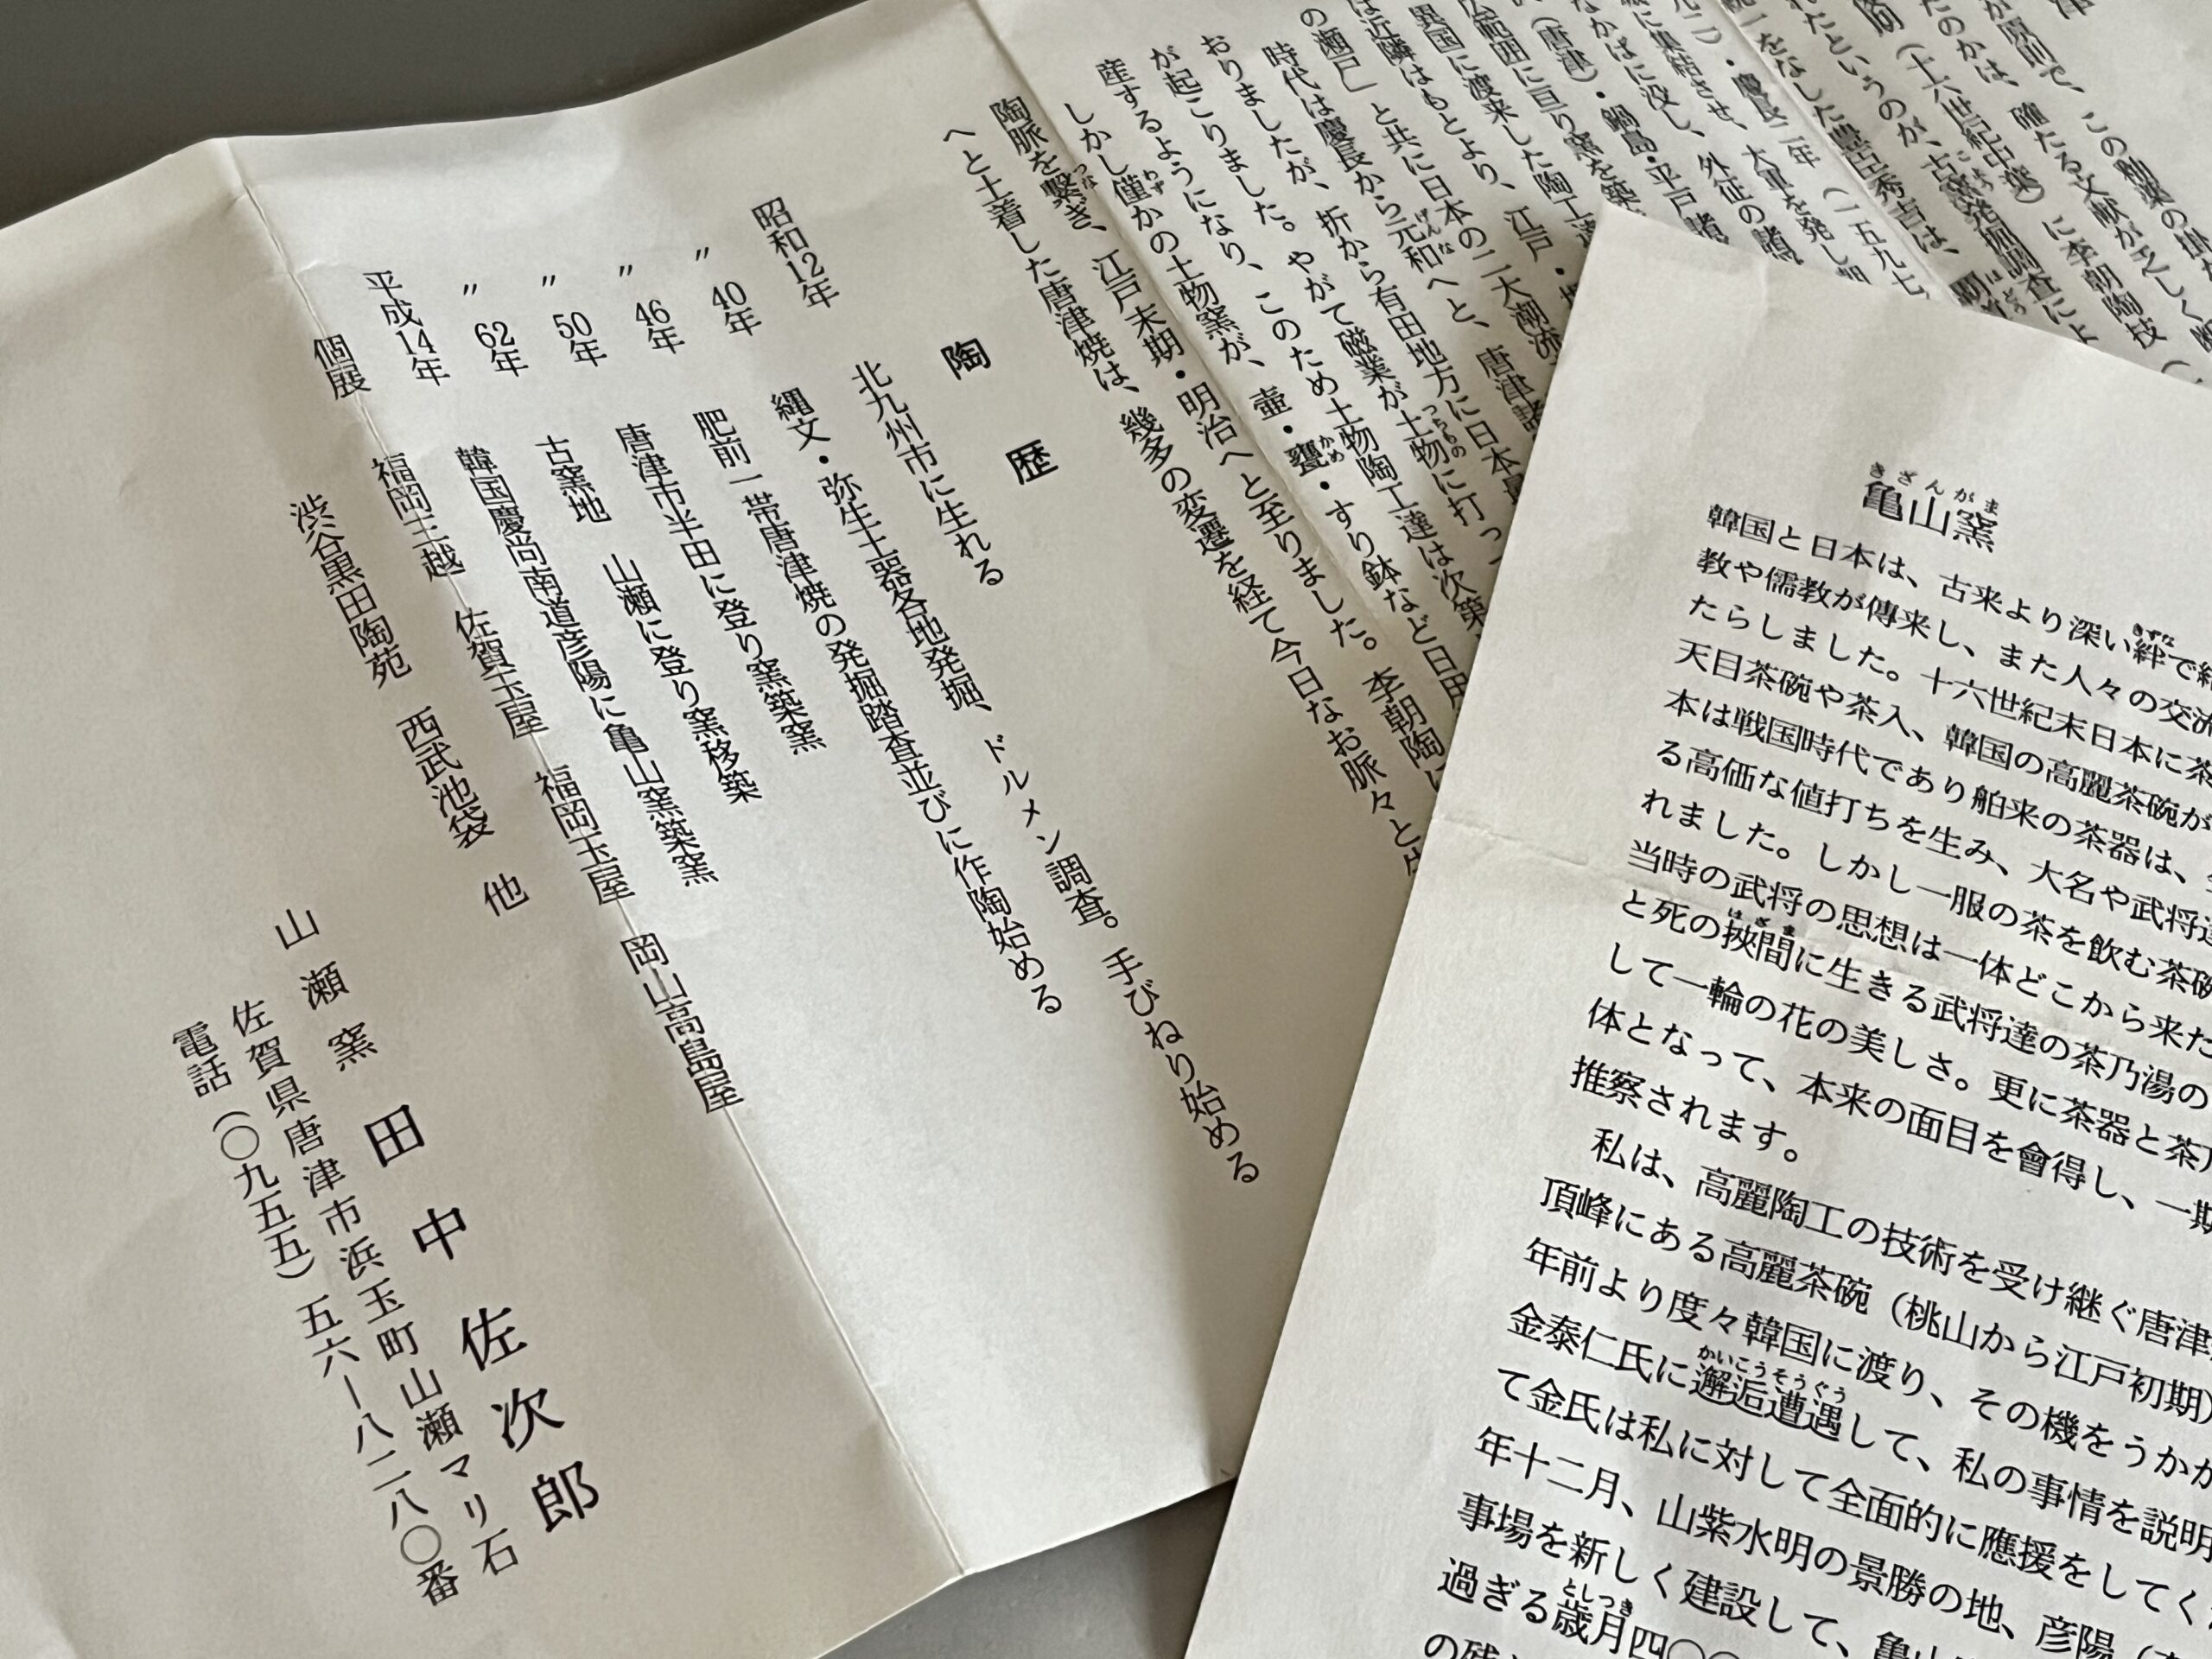 が原則で、この釉薬の
たのかは、確たる文献が乏しく
(十六世紀中葉)に李朝陶技
れたというのが、古窯発掘調査によ
統一をなした豊臣秀吉は、
元二)・慶長二年(一五九七
に集結させ、大軍を発し
なかばに没し、外征の諸
(唐津)・鍋島・平戸諸
広範囲に亘り窯を築
異国に渡来した陶工達
は近隣はもとより、江戸・
の瀬戸」と共に日本の二大潮流
時代は慶長から元和へと、唐津諸
おりましたが、折から有田地方に日本
が起こりました。やがて磁業が土物に打っ
産するようになり、このため土物陶工達は次第
しかし僅かの土物窯が、壷・甕・すり鉢など日用
陶脈を繋ぎ、江戸末期・明治へと至りました。李朝陶
へと土着した唐津焼は、幾多の変遷を経て今日なお脈々と
陶歴
昭和12年 北九州市に生れる
縄文・弥生土器各地発掘、ドルメン調査。手びねり始める
〃 40年 肥前一帯唐津焼の発掘踏査並びに作陶始める
〃 46年 唐津市半田に登り窯築窯
〃 50年 古窯地 山瀬に登り窯移築
〃 62年 韓国慶尚南道彦陽に亀山窯築窯
平成14年 福岡三越 佐賀玉屋 福岡玉屋 岡山高島屋
個展 渋谷黒田陶苑 西武池袋 他
山瀬窯 田中佐次郎
佐賀県唐津市浜玉町山瀬マリ石
電話(〇九五五)五六―八二八〇番
きざんがま
亀山窯
韓国と日本は、古来より深い絆で
教や儒教が傳来し、また人々の交流
たらしました。十六世紀末日本に茶
天目茶碗や茶入、韓国の高麗茶碗が
本は戦国時代であり舶来の茶器は、
る高価な値打ちを生み、大名や武将達
れました。しかし一服の茶を飲む茶碗
当時の武将の思想は一体どこから来た
と死の挾間に生きる武将達の茶乃湯の
して一輪の花の美しさ。更に茶器と茶乃
体となって、本来の面目を會得し、一期
推察されます。
私は、高麗陶工の技術を受け継ぐ唐津
頂峰にある高麗茶碗（桃山から江戸初期）
年前より度々韓国に渡り、その機をうかが
金泰仁氏に邂逅遭遇して、私の事情を説明
て金氏は私に対して全面的に應援をしてく
年十二月、山紫水明の景勝の地、彦陽（
事場を新しく建設して、亀山
過ぎる歳月四〇〇
の残